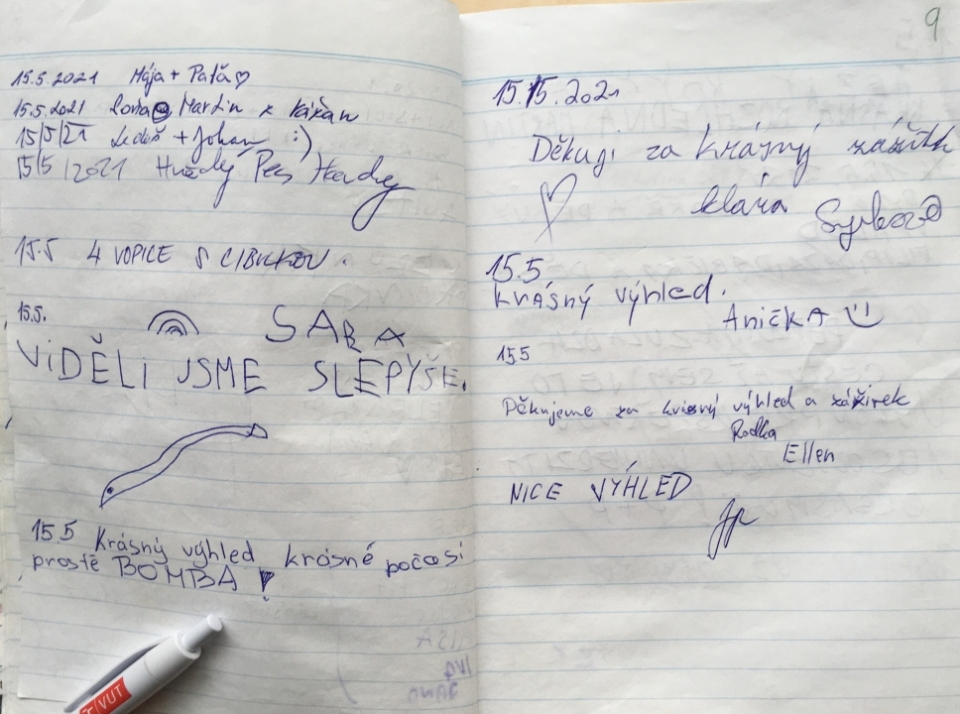 15.5.2021 Mája + Paťa
15.5.2021 Martin z
15/5/21 + Johan :)
15/5/2021 Hnědý Pes
15.5 4 VOPICE S CIBULKOU.
15.5. SARA
VIDĚLI JSME SLEPÝŠE.
15.5 Krásný výhled krásné počasí
prostě BOMBA!
ČVUT
9
15.5.2021
Děkuji za krásný zážitk
Klára
15.5
krásný výhled.
Anička
155
Děkujeme za krásný výhled a zážitek
Radka
Ellen
NICE VÝHLED